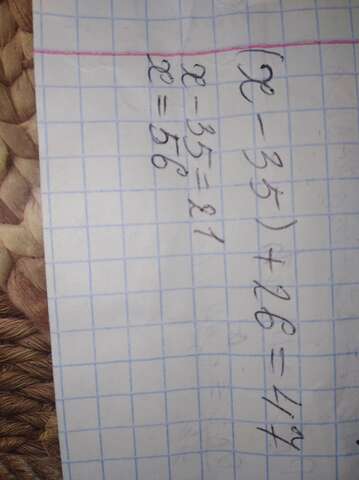 (x - 35) + 26 = 47
x - 35 = 21
x = 56